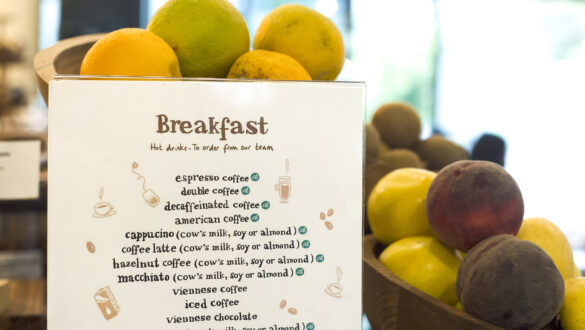 Breakfast
Hot drinks-To order from our team
espresso coffee
double coffee
decaffeinated coffee
american coffee
cappuccino (cow's milk, soy or almond)
coffee latte (cow's milk, soy or almond)
hazelnut coffee (cow's milk, soy or almond)
macchiato (cow's milk, soy or almond)
viennese coffee
iced coffee
viennese chocolate
(cow's milk, soy or almond)